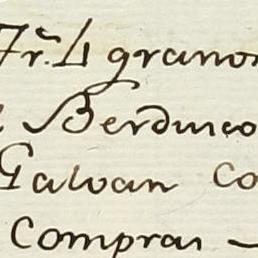 Fr. L granos
Berduco
Galvan Co
Compras —